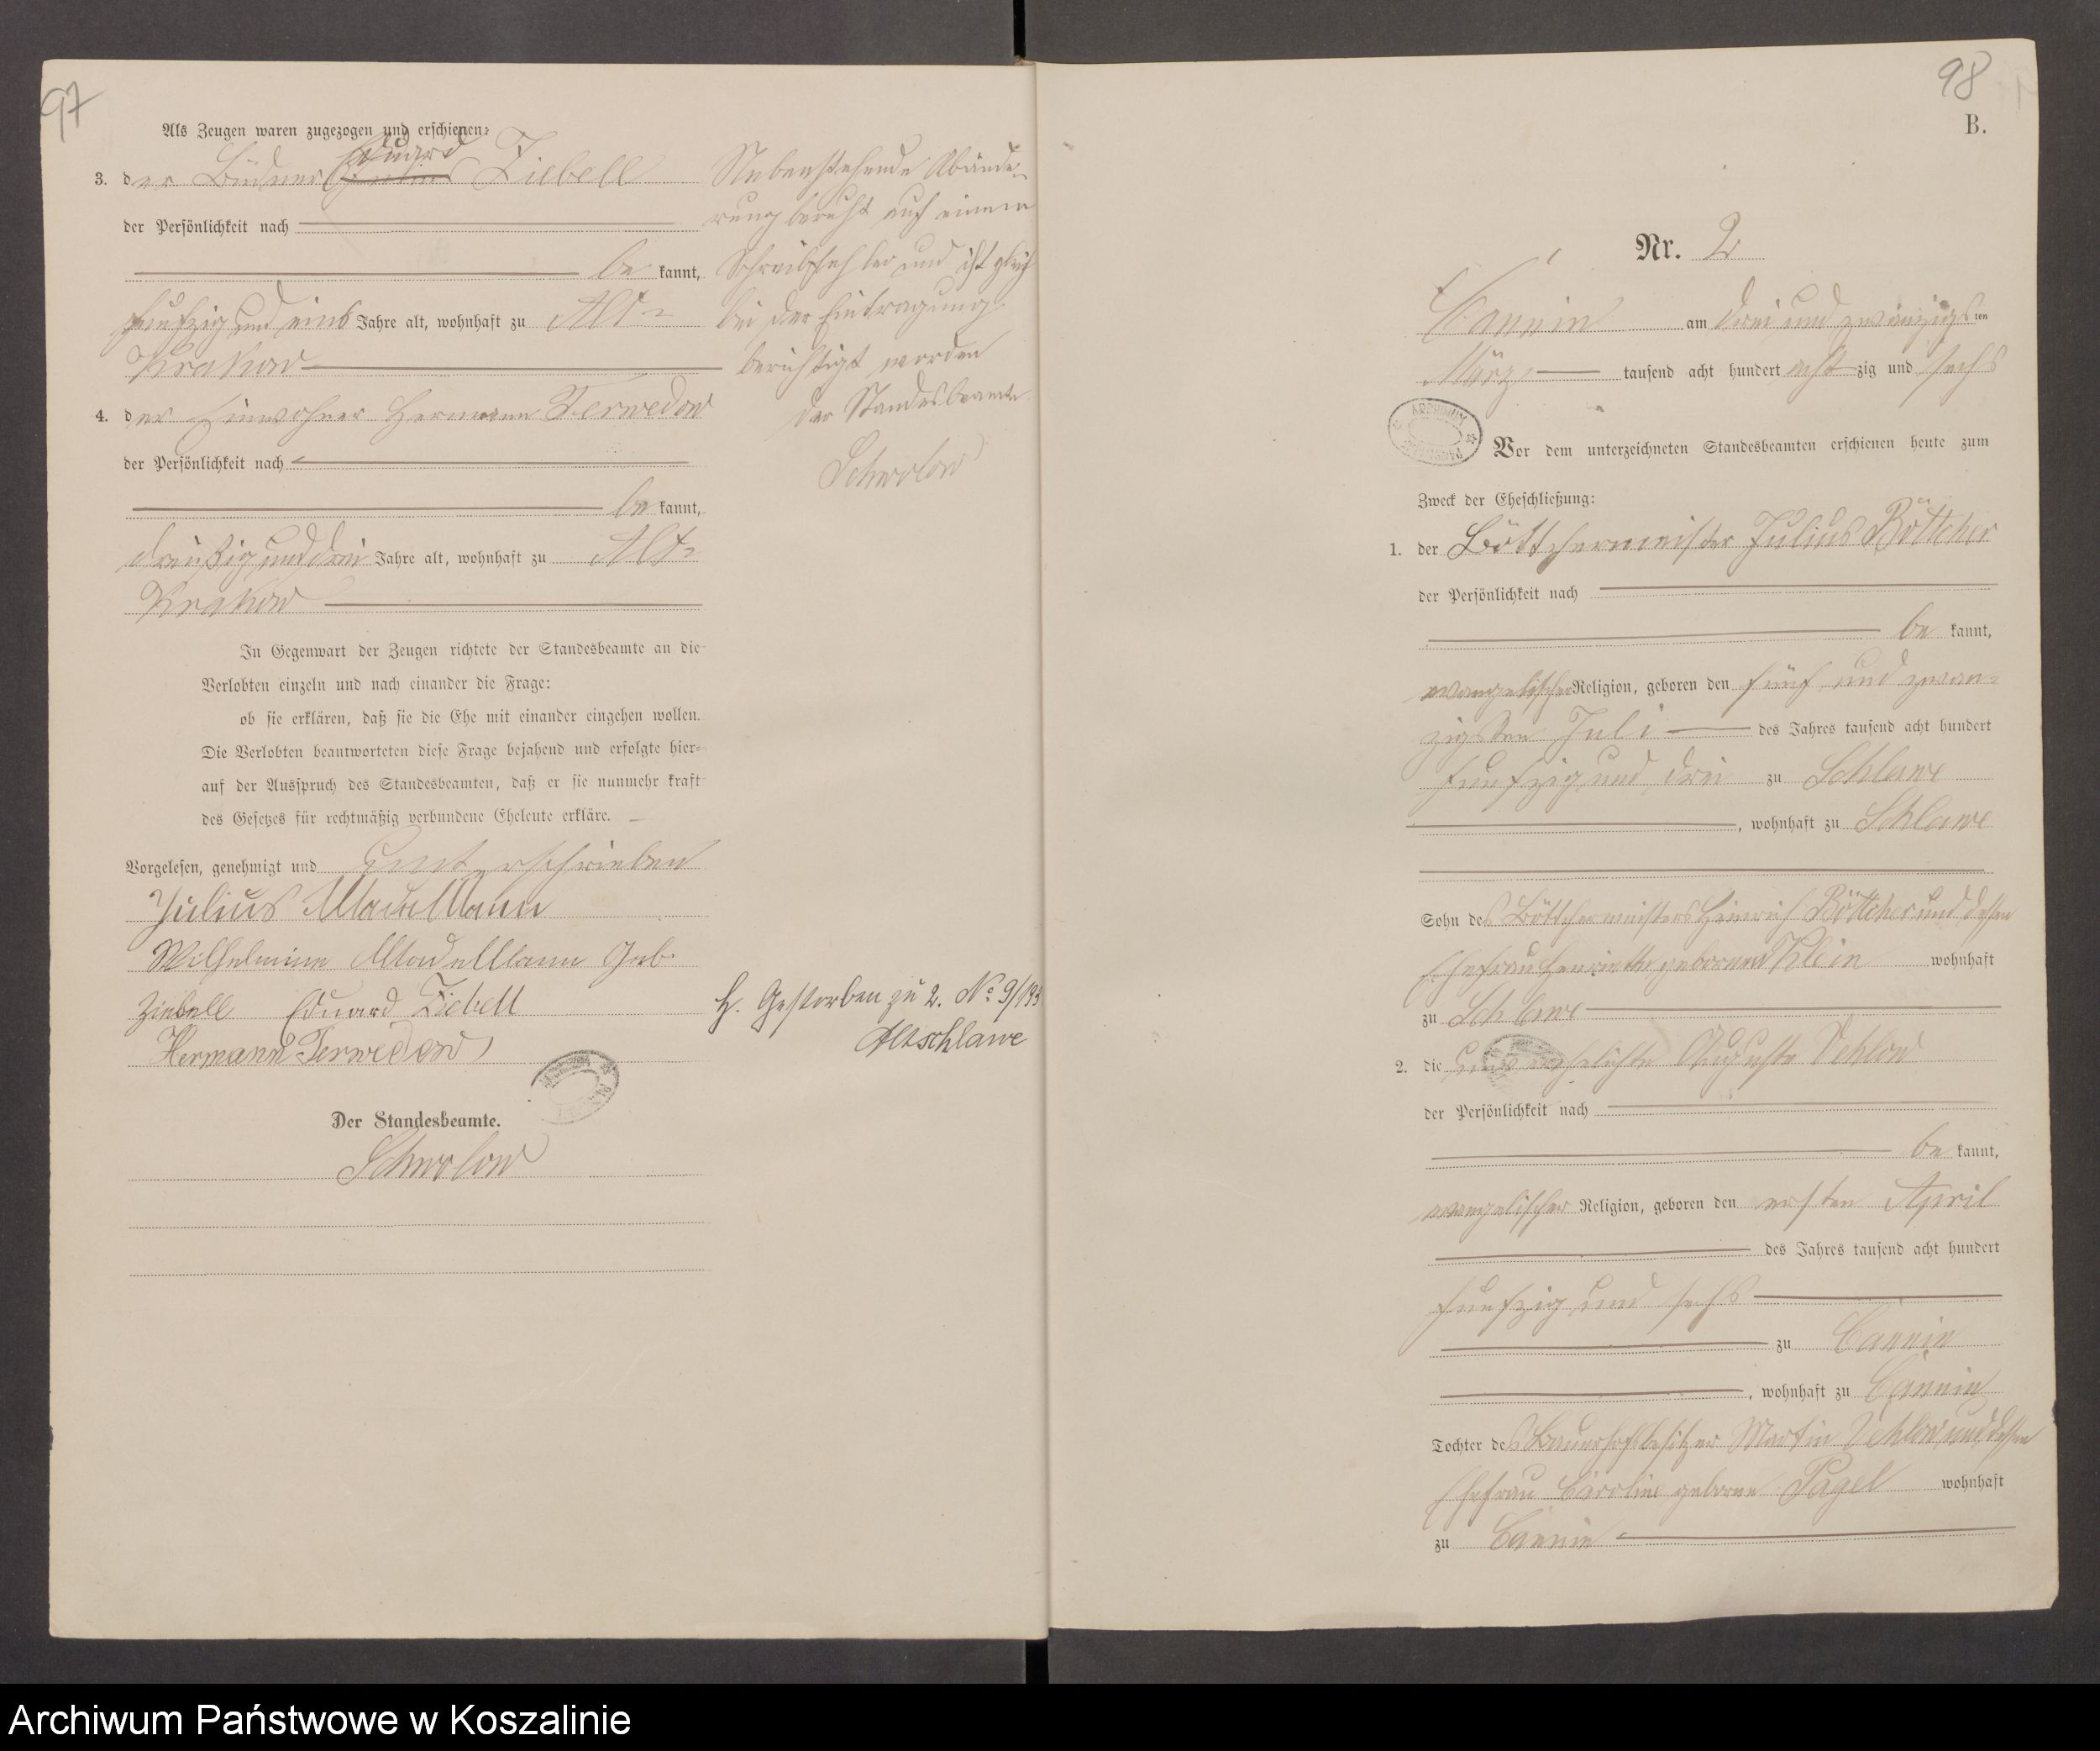 97
Als Zeugen waren zugezogen und erschienen:
Eduard
3. der Büdner Ziebell
der Persönlichkeit nach
be kannt,
fünfzig und eins Jahre alt, wohnhaft zu Alt-
Krakow
4. der Einwohner Hermann Terwedow
der Persönlichkeit nach
be kannt,
dreißig und drei Jahre alt, wohnhaft zu Alt-
Krakow
In Gegenwart der Zeugen richtete der Standesbeamte an die
Verlobten einzeln und nach einander die Frage:
ob sie erklären, daß sie die Ehe mit einander eingehen wollen.
Die Verlobten beantworteten diese Frage bejahend und erfolgte hier-
auf der Ausspruch des Standesbeamten, daß er sie nunmehr kraft
des Gesetzes für rechtmäßig verbundene Eheleute erkläre.
Vorgelesen, genehmigt und unterschrieben
Julius
Wilhelmine geb.
Ziebell Eduard Ziebell
Hermann Terwedow
Der Standesbeamte.
Schwolow
Nebenstehende Abände-
rung beruht auf einem
Schreibfehler und ist gleich
bei der Eintragung
berichtigt worden
Der Standesbeamte
Schwolow
H. Gestorben zu 2. No 9/193
Altschlawe
98
B.
Nr. 2
Cannin am drei und zwanzigsten
März tausend acht hundert acht zig und sechs
ARCHIWUM
Vor dem unterzeichneten Standesbeamten erschienen heute zum
Zweck der Eheschließung:
1. der Böttchermeister Julius Böttcher
der Persönlichkeit nach
be kannt,
evangelischer Religion, geboren den fünf und zwan-
zigsten Juli des Jahres tausend acht hundert
fünfzig und drei zu Schlawe
, wohnhaft zu Schlawe
Sohn des Böttchermeisters Heinrich Böttcher und dessen
Ehefrau Henriette geborenen Klein wohnhaft
zu Schlawe
2. die unverehelichte Auguste Vehlow
der Persönlichkeit nach
be kannt,
evangelischer Religion, geboren den ersten April
des Jahres tausend acht hundert
fünfzig und sechs
zu Cannin
, wohnhaft zu Cannin
Tochter des Bauerhofsbesitzer Martin Vehlow und dessen
Ehefrau Caroline geborene Pagel wohnhaft
zu Cannin
Archiwum Państwowe w Koszalinie